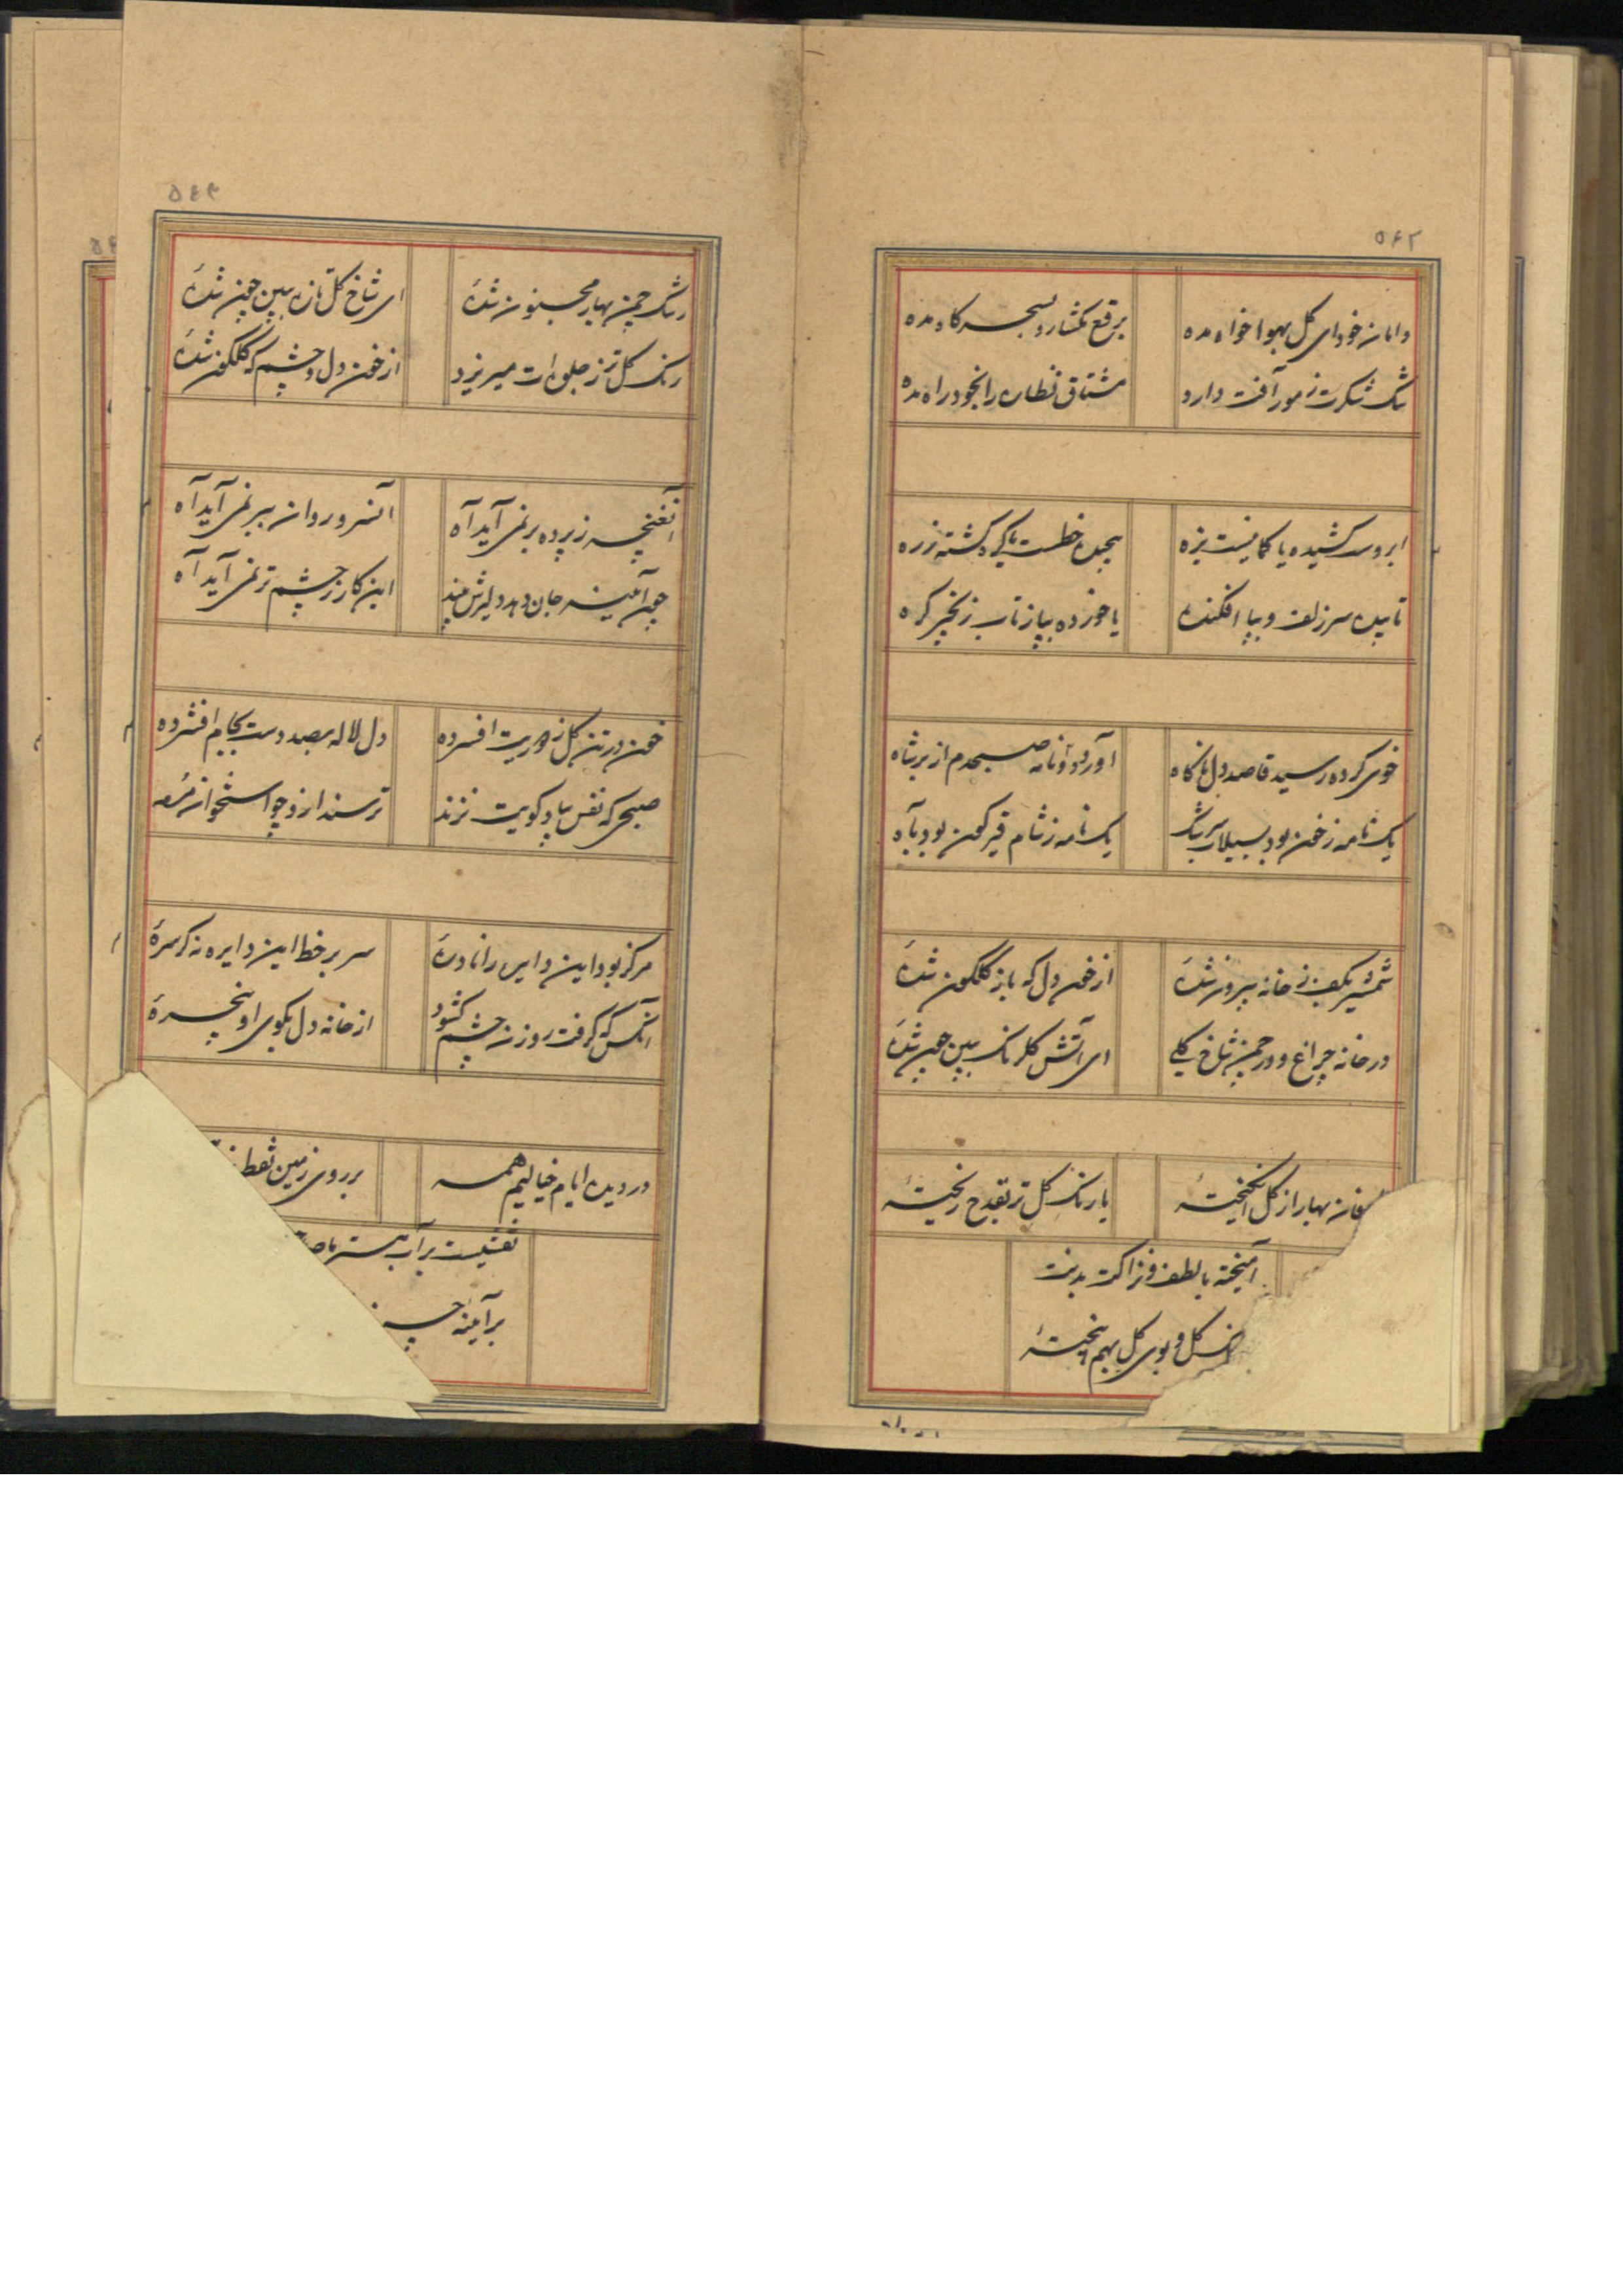 ۵۶۲
دامان خود ای گل بهوا خواه مده
برقع بکشا رو بسحر گاه مده
تنگ شکرت ز مور آفت دارد
مشتاق نظاره را بخود راه مده
ابروست کشیده یا کمانیست بزه
پیچیده خطست یا گره گشته زره
تابیده سر زلف و بپا افکنده
یا خورده بپا ز تاب زنجیر گره
خوی کرده رسید قاصد دل ناگاه
آورد دو نامه صبحدم از بر شاه
یک نامه ز خون بود بسیلاب سرشک
یک نامه ز شام قیرگون بود بآه
شمشیر بکف ز خانه بیرون شدهٔ
از خون دل که باز گلگون شدهٔ
در خانه چراغ و در چمن شاخ گلی
ای آتش گلرنگ ببین چون شدهٔ
بهار از گل انگیختهٔ
یا رنگ گل تر بقدح ریختهٔ
آمیخته با لطف و نزاکت بدنت
گل و بوی گل بهم بیختهٔ
۵۶۳
رشک چمن بهار مجنون شدهٔ
ای شاخ گل تازه ببین چون شدهٔ
رنگ گل تر ز جلوه‌ات میریزد
از خون دل و چشم که گلگون شدهٔ
آنغنچه ز پرده بر نمی آید آه
آنسرو روان ببر نمی آید آه
چون آینه جان دهد و لبرش بیند
این کار ز چشم تر نمی آید آه
خون در تن گل ز افسرده
دل لاله بصد دست بجام افشرده
صبحی که نفس بیاد کویت نزند
ترسند ازو چو استخوان مرده
مرکز بود این دایره را نادرهٔ
سر بر خط این دایره نه گر سرهٔ
آنکس که گرفت روزن چشم گشود
از خانه دل بکوی او پنجرهٔ
در دیده ایام خیالیم همه
بر روی زمین
نقشیست بر آب هستی ما
بر آینه